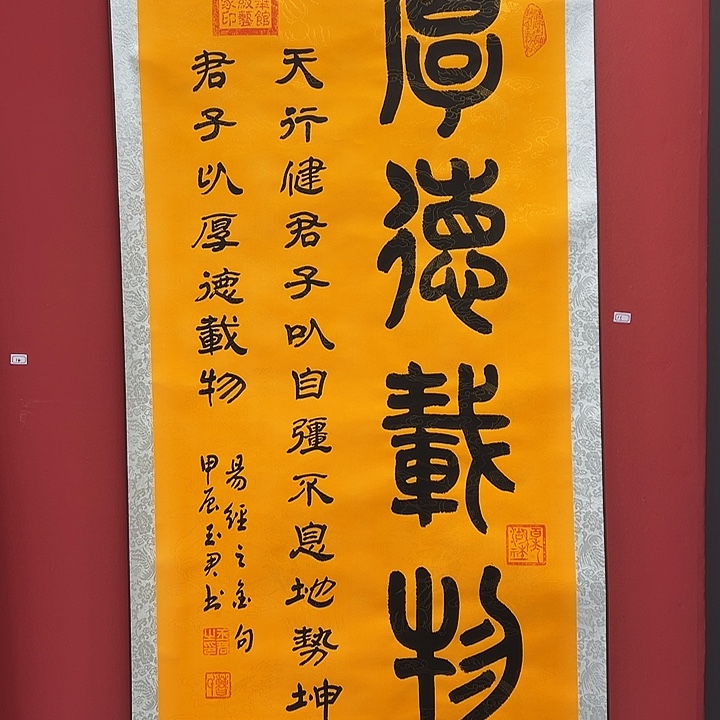 厚德載物
天行健君子以自彊不息地勢坤
君子以厚德載物
易經之金句
甲辰玉君书